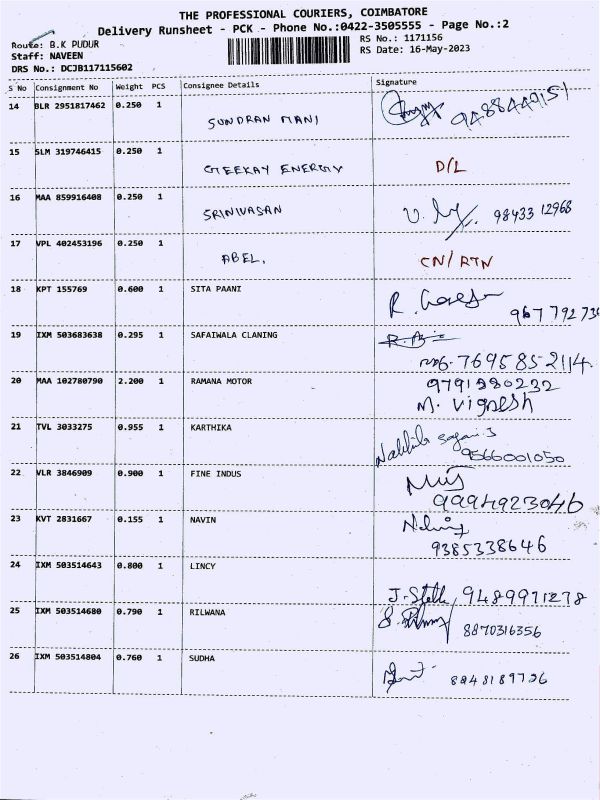 THE PROFESSIONAL COURIERS, COIMBATORE
Delivery Runsheet - PCK - Phone No.:0422-3505555 - Page No.:2
Route: B.K PUDUR
RS No.: 1171156
Staff: NAVEEN
RS Date: 16-May-2023
DRS No.: DCJB117115602
S No Consignment No Weight PCS Consignee Details Signature
14 BLR 2951817462 0.250 1 SUNDRAN MANI
15 SLM 319746415 0.250 1 GEEKAY ENERGY D/L
16 MAA 859916408 0.250 1 SRINIVASAN 98433 12968
17 VPL 402453196 0.250 1 ABEL, CN/RTN
18 KPT 155769 0.600 1 SITA PAANI R.
19 IXM 503683638 0.295 1 SAFAIWALA CLANING
7695852114
20 MAA 102780790 2.200 1 RAMANA MOTOR 9791980232
M. Vignesh
21 TVL 3033275 0.955 1 KARTHIKA
9566001050
22 VLR 3846909 0.900 1 FINE INDUS
9994923046
23 KVT 2831667 0.155 1 NAVIN
9385338646
24 IXM 503514643 0.800 1 LINCY
J. Stella 9489971278
25 IXM 503514680 0.790 1 RILWANA
8870316356
26 IXM 503514804 0.760 1 SUDHA